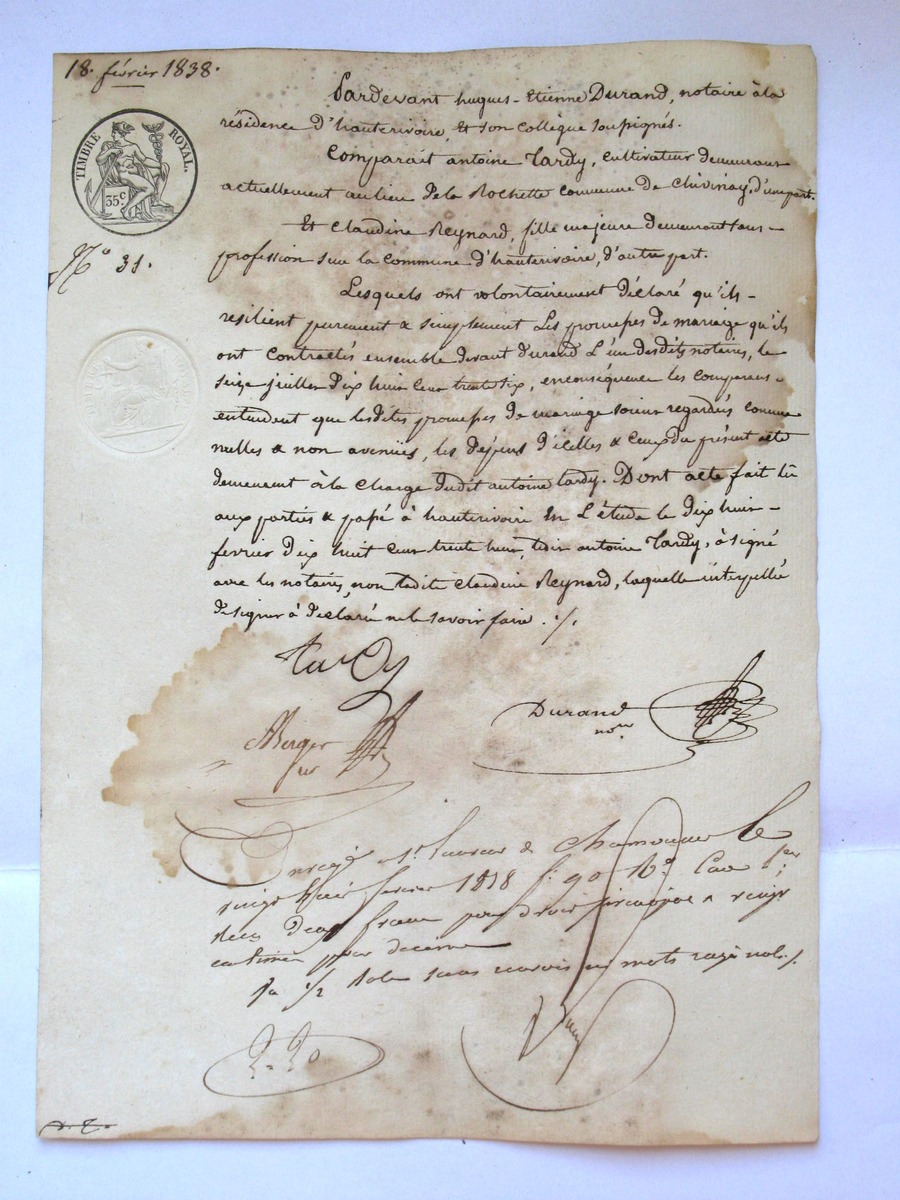 18. février 1838.
TIMBRE ROYAL.
35c
N° 31.
Pardevant hugues-Etienne Durand, notaire à la
résidence d'hauterivoire, et son collègue soussignés.
Comparait antoine Tardy, cultivateur demeurant
actuellement au lieu de la Rochette commune de Chivinay, d'une part.
Et Claudine Reynard, fille majeure demeurant sans
profession sur la commune d'hauterivoire, d'autre part.
Lesquels ont volontairement déclaré qu'ils
resilient purement & simplement les promesses de mariage qu'ils
ont contractés ensemble devant Durand l'un desdits notaires, le
seize juillet dix huit cent trente six, en conséquence les comparans
entendent que lesdites promesses de mariage soient regardées comme
nulles & non avenües, les dépens d'icelles & ceux du présent acte
demeurent à la charge dudit antoine tardy. Dont acte fait lû
aux parties & passé à hauterivoire en l'étude le dix huit
fevrier dix huit cent trente huit, ledit antoine Tardy, à signé
avec les notaires, non ladite Claudine Reynard, laquelle interpellée
de signer à déclaré ne le savoir faire ./.
Tardy
Durand
nore
Berger
Enregé à St Laurent de Chamousset le
vingt huit fevrier 1838 f. 90 Ro. Case 1ere
Reçu deux francs pour droit vingt
centimes pour decime
2-20